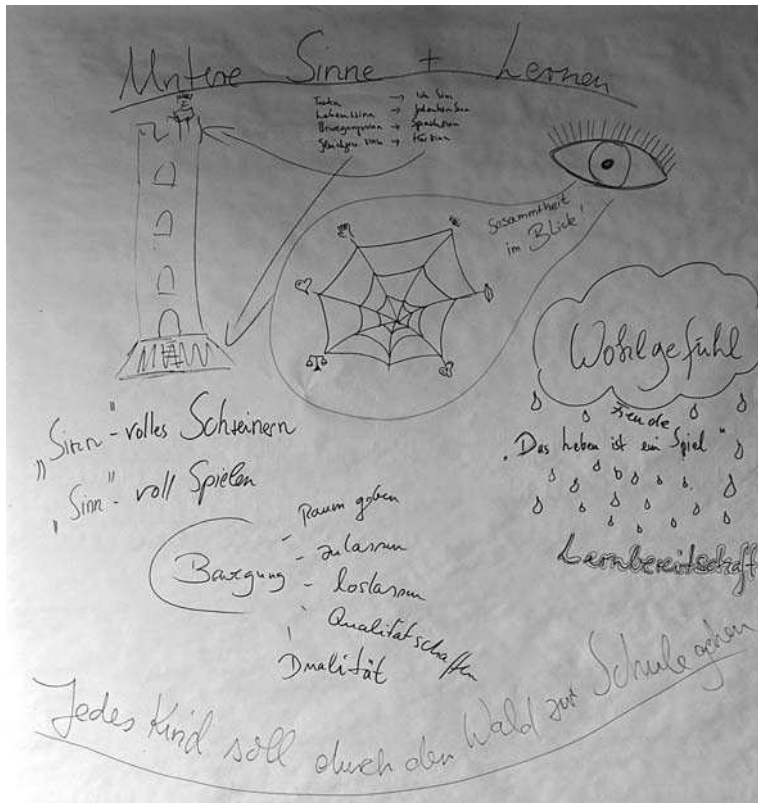 Untere Sinne + Lernen
Tasten → Ich Sinn
Lebenssinn → Gedankensinn
Bewegungssinn → Sprachsinn
Gleichgew. sinn → Hörsinn
Gesamtheit
im Blick!
Wohlgefühl
Freude
"Das Leben ist ein Spiel"
Lernbereitschaft
„Sinn"-volles Schreinern
„Sinn"-voll Spielen
Bewegung
- Raum geben
- zulassen
- loslassen
- Qualität schaffen
- Dualität
Jedes Kind soll durch den Wald zur Schule gehen